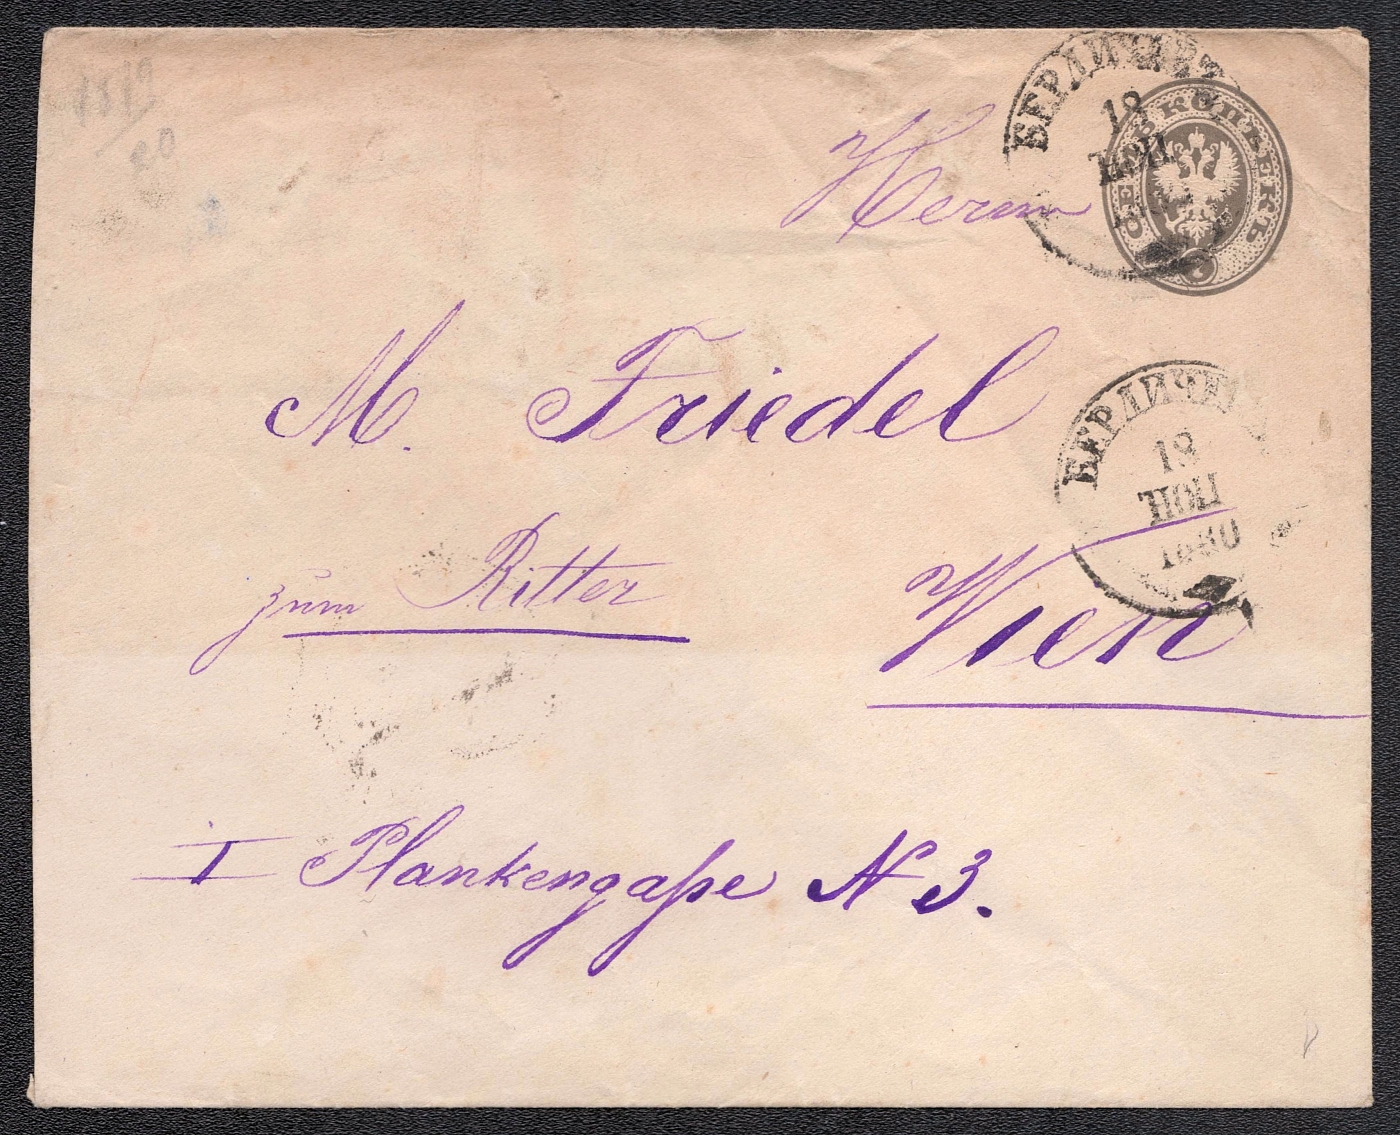 БЕРДИЧЕВ
18
ІЮН.
СЕМЬ КОПѢЕКЪ
7
Herrn
M. Friedel
БЕРДИЧЕВ
18
ІЮН.
1880
zum Ritter
Wien
I Plankengaße N 3.